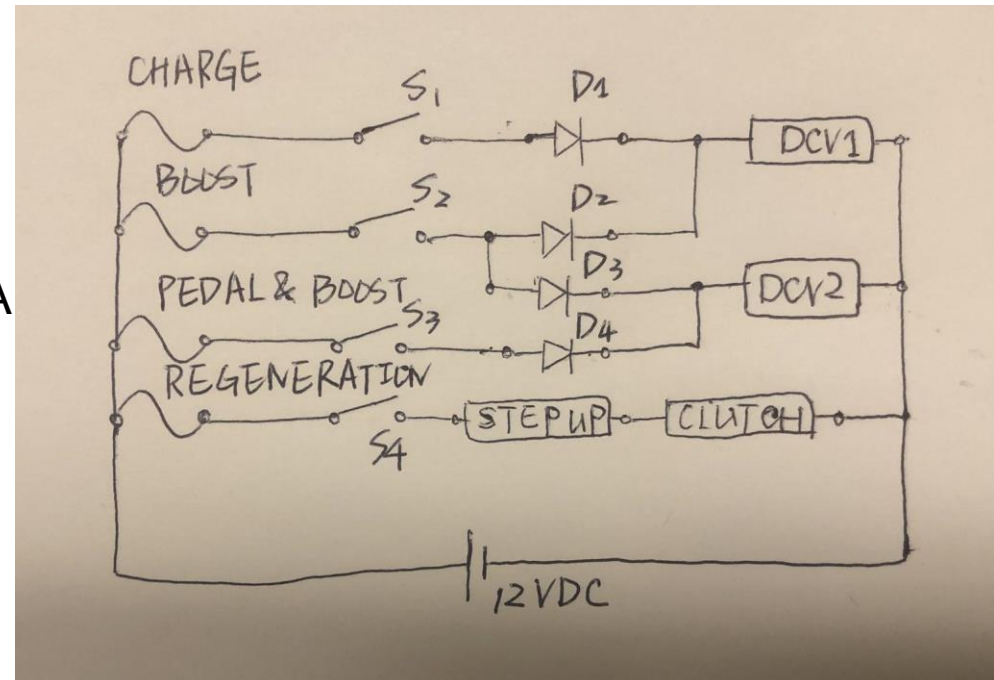 CHARGE
S1
D1
DCV1
BOOST
S2
D2
D3
DCV2
PEDAL & BOOST
S3
D4
REGENERATION
S4
STEP UP
CLUTCH
12VDC
A